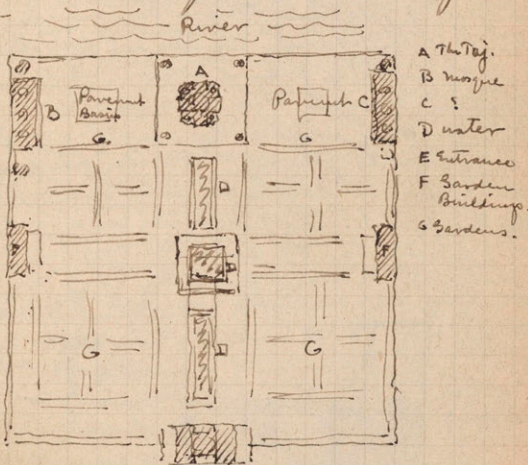 River
A
Pavement
Basin
B
Pavement
C
G.
G
D
D
F
G
D
G
A The Taj.
B Mosque
C ?
D water
E Entrance
F Garden
Buildings.
G Gardens.